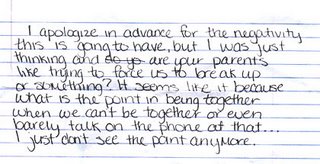 I apologize in advance for the negativity
this is going to have, but I was just
thinking and do yo are your parents
like trying to force us to break up
or something? It seems like it because
what is the point in being together
when we can't be together or even
barely talk on the phone at that...
I just dont see the point anymore.